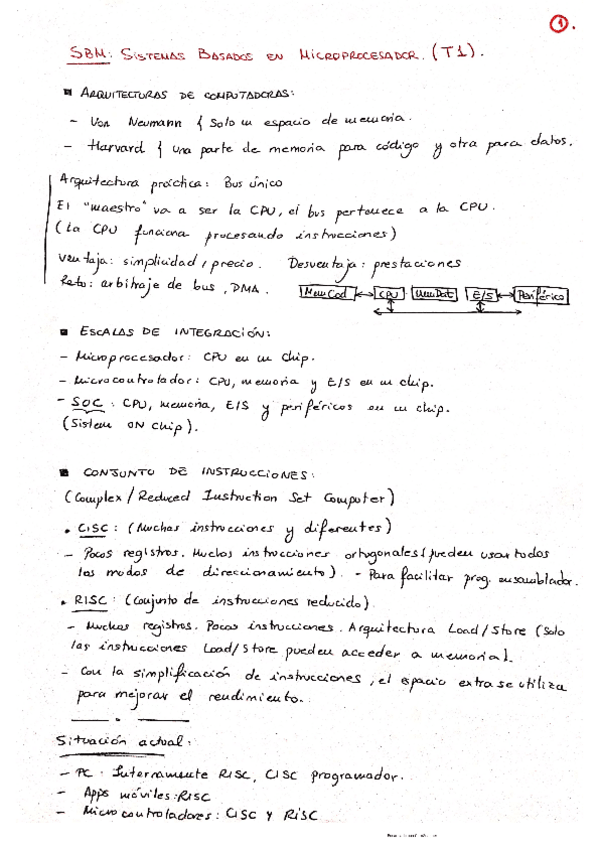 1.
SBM: SISTEMAS BASADOS EN MICROPROCESADOR. (T1).
▪ ARQUITECTURAS DE COMPUTADORAS:
- Von Neumann { Solo un espacio de memoria.
- Harvard { una parte de memoria para código y otra para datos.
Arquitectura práctica: Bus único
El "maestro" va a ser la CPU, el bus pertenece a la CPU.
(La CPU funciona procesando instrucciones)
Ventaja: simplicidad, precio. Desventaja: prestaciones
Reto: arbitraje de bus, DMA. Mem Cod CPU Mem Dat E/S Periférico
▪ ESCALAS DE INTEGRACIÓN:
- Microprocesador: CPU en un chip.
- Microcontrolador: CPU, memoria y E/S en un chip.
- SOC: CPU, memoria, E/S y periféricos en un chip.
(Sistem ON chip).
▪ CONJUNTO DE INSTRUCCIONES:
(Complex / Reduced Instruction Set Computer)
• CISC: (Muchas instrucciones y diferentes)
- Pocos registros. Muchas instrucciones ortogonales (pueden usar todos
los modos de direccionamiento). - Para facilitar prog. ensamblador.
• RISC: (Conjunto de instrucciones reducido).
- Muchos registros. Pocas instrucciones. Arquitectura Load/Store (Solo
las instrucciones Load/Store pueden acceder a memoria).
- Con la simplificación de instrucciones, el espacio extra se utiliza
para mejorar el rendimiento.
Situación actual:
- PC: Internamente RISC, CISC programador.
- Apps móviles: RISC
- Microcontroladores: CISC y RISC